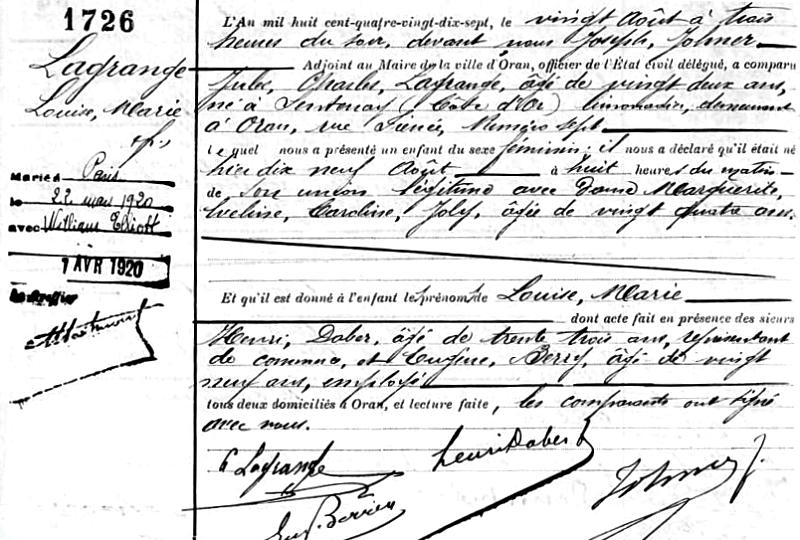 1726
Lagrange
Louise, Marie
Marié à Paris
le 22 mars 1920
avec William Elliott
1 AVR 1920
Le Greffier
L'An mil huit cent-quatre-vingt-dix-sept, le vingt Août à trois
heures du soir, devant nous Joseph, Johner
Adjoint au Maire de la ville d'Oran, officier de l'État civil délégué, a comparu
Jules, Charles, Lagrange, âgé de vingt deux ans,
né à (Côte d'Or) limonadier, demeurant
à Oran, rue Numéro sept
lequel nous a présenté un enfant du sexe féminin; il nous a déclaré qu'il était né
hier dix neuf Août à huit heures du matin
de son union légitime avec Dame Marguerite,
Caroline, Joly, âgée de vingt quatre ans.
Et qu'il est donné à l'enfant les prénoms de Louise, Marie
dont acte fait en présence des sieurs
Henri, Daber, âgé de trente trois ans, représentant
de commerce, et Eugène, âgé de vingt
neuf ans, employé
tous deux domiciliés à Oran, et lecture faite, les comparants ont signé
avec nous.
Lagrange
henri Daber
Johner J.